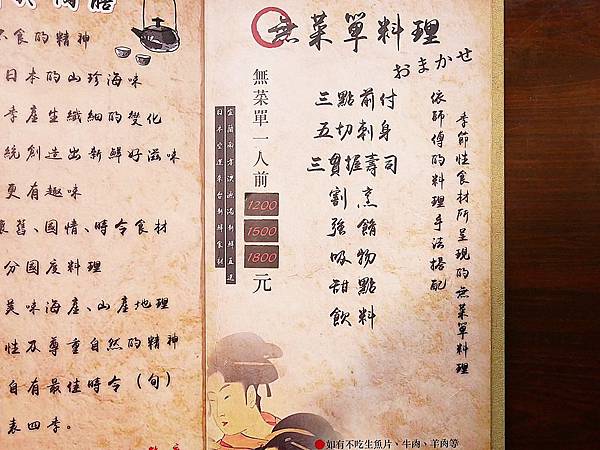 不食的精神
日本的山珍海味
季產生纖細的變化
統創造出新鮮好滋味
更有趣味
懷舊、國情、時令食材
分國度料理
美味海產、山產地理
性及尊重自然的精神
自有最佳時令(旬)
表四季。
無菜單料理
おまかせ
季節性食材所呈現的無菜單料理
依師傅的料理手法搭配
三點前付
五切刺身
三貫握壽司
割烹
強餚
吸物
甜點
飲料
無菜單一人前
1200
1500
1800
元
宜蘭南方澳漁港新鮮直送
日本空運來台新鮮食材
●如有不吃生魚片、牛肉、羊肉等